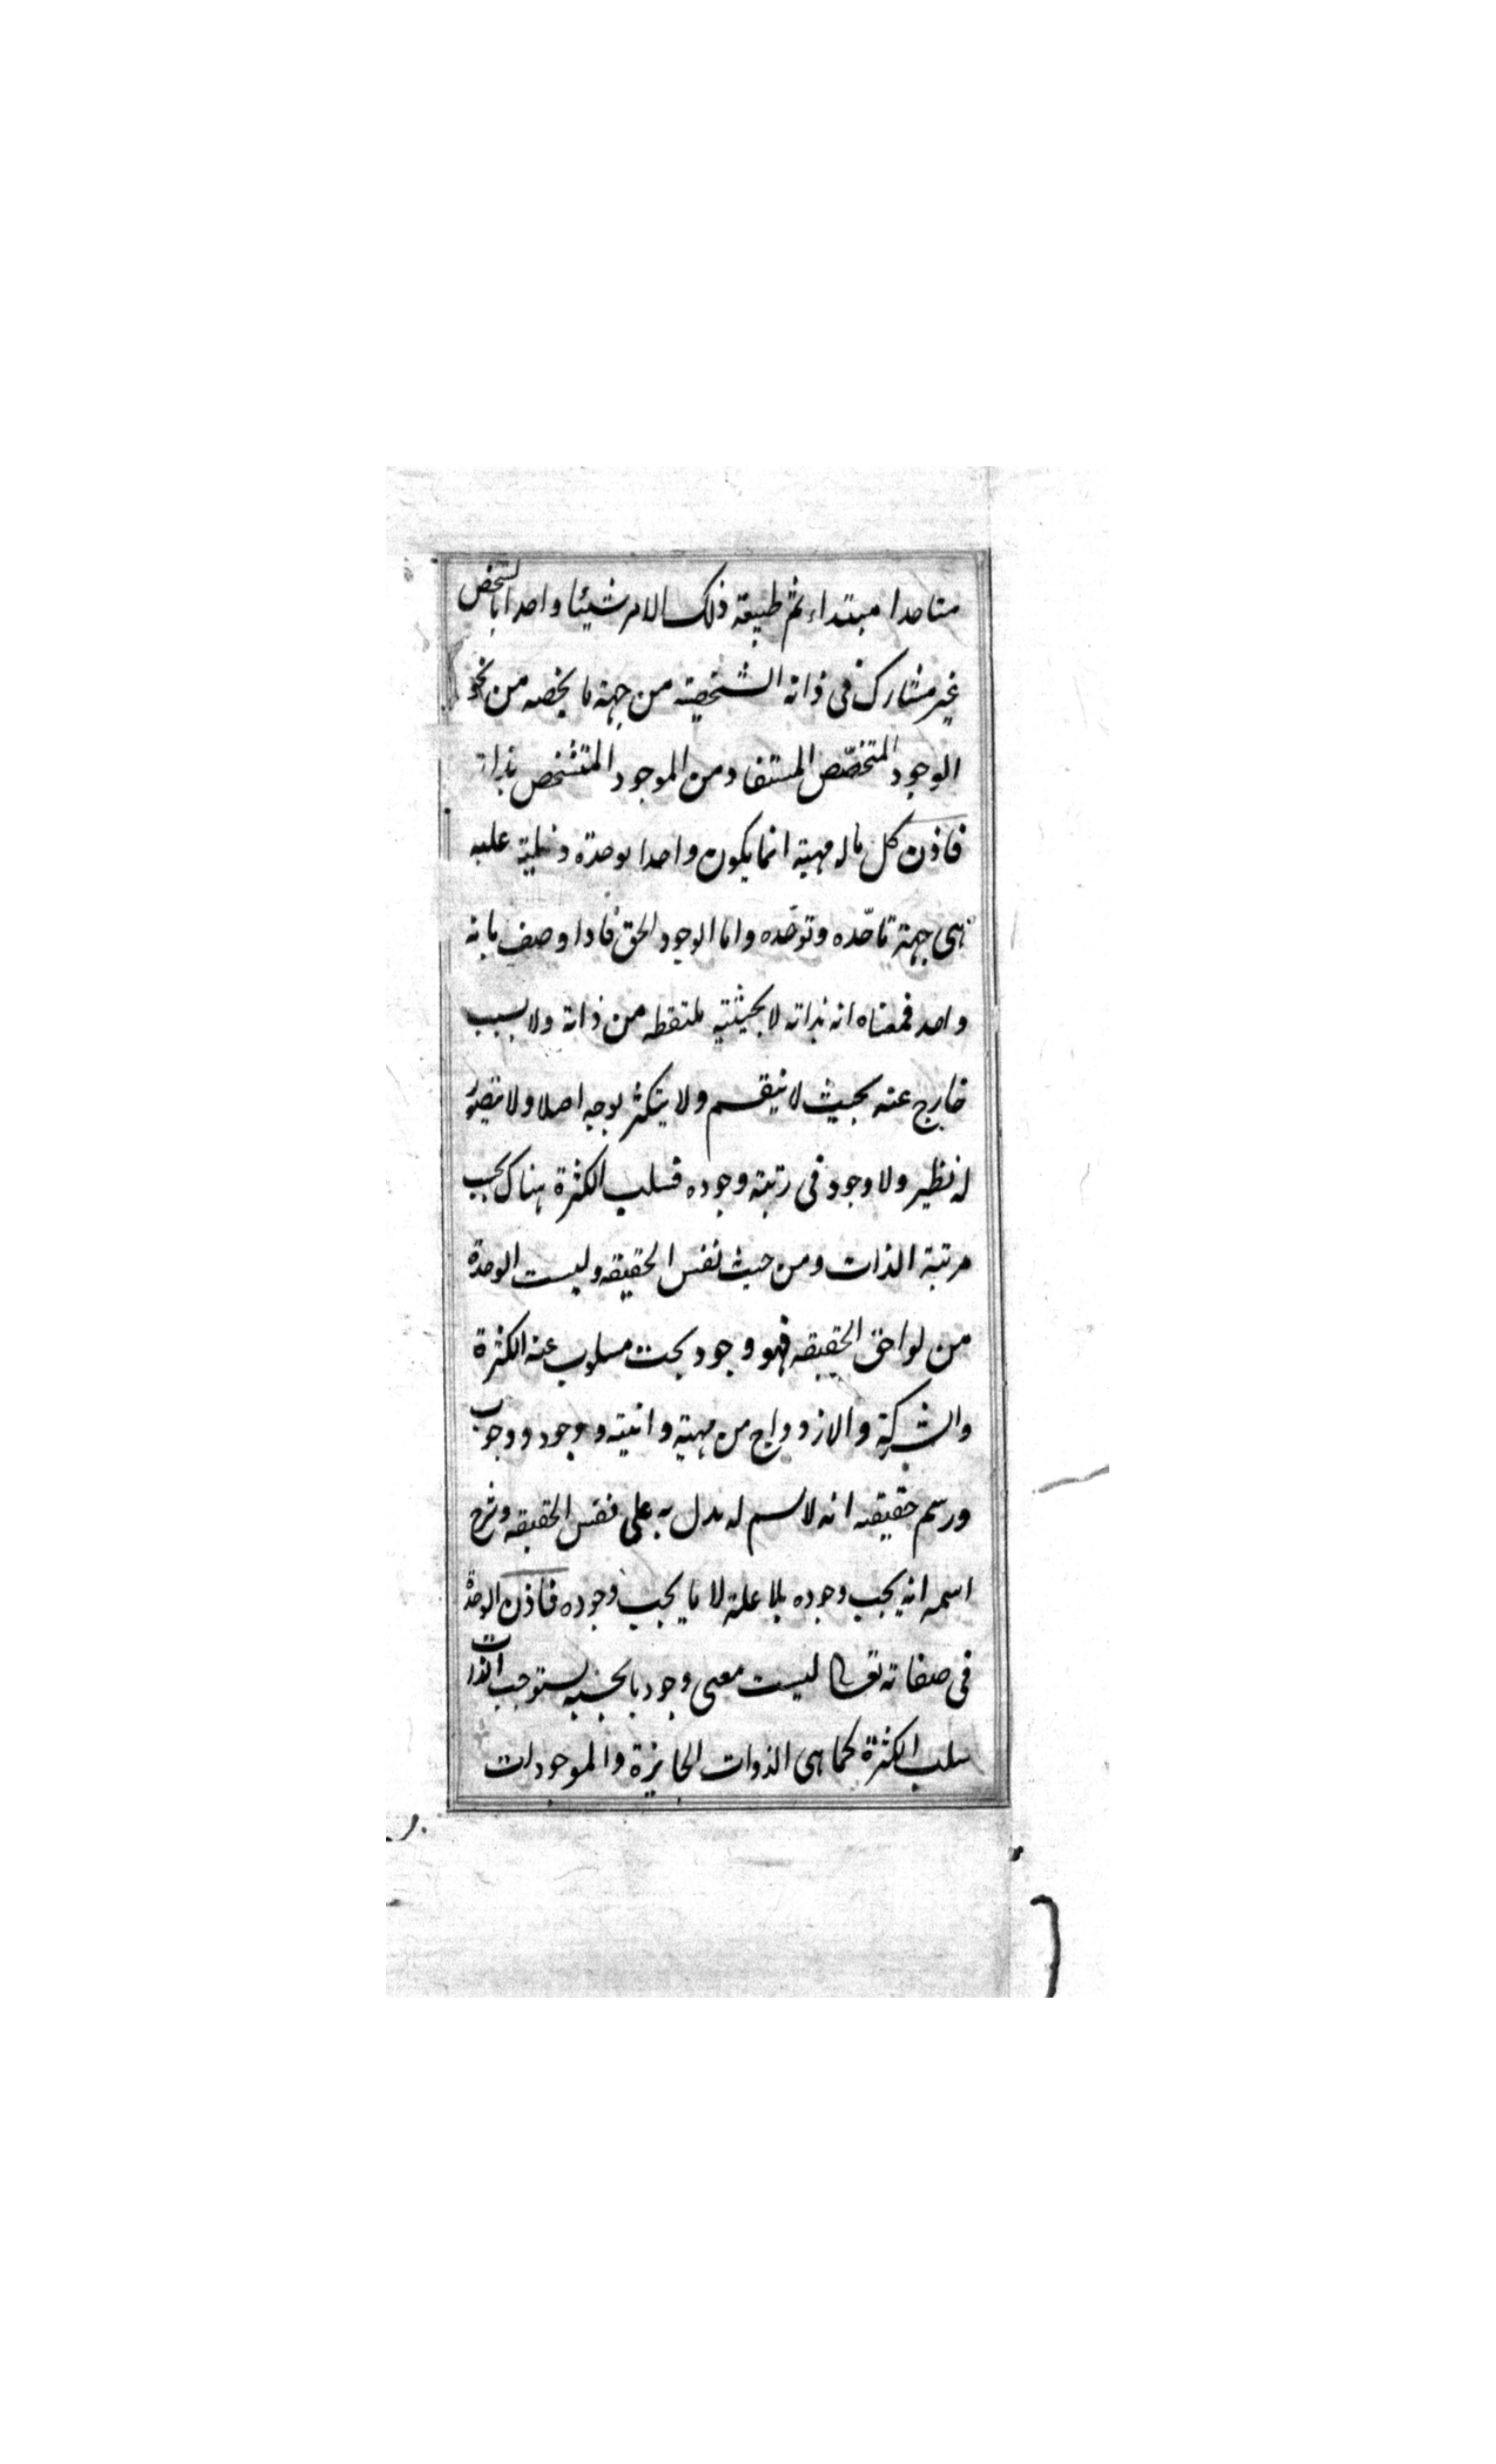 متاحدا مبتداء ثم طبيعة ذلك الامر شيئا واحدا بالشخص
غير مشارك فى ذاته الشخصية من جهة ما يخصه من نحو
الوجود المتخصّص المستفاد من الموجود المتشخص بذاته
فاذن كل ماله مهية انما يكون واحدا بوحدة عليه
هى جهة تاحّده وتوحّده واما الوجود الحق فاذا وصف بانه
واحد فمعناه انه بذاته لا بحيثية ملتقطه من ذاته ولا بسبب
خارج عنه بحيث لا ينقسم ولا يتكثر بوجه اصلا ولا يتصور
له نظير ولا وجود فى رتبة وجوده فسلب الكثرة هناك بحسب
مرتبة الذات ومن حيث نفس الحقيقه وليست الوحدة
من لواحق الحقيقه فهو وجود بحت مسلوب عنه الكثرة
والشركة والازدواج من مهية وانية ووجود ووجوب
ورسم حقيقته انه لا اسم له يدل به على نفس الحقيقه وشرح
اسمه انه يجب وجوده بلا علة لا ما يجب وجوده فاذن الوحدة
فى صفاته تعالى ليست معنى وجوديا بجنبه يستوجب الذات
سلب الكثرة كما هى الذوات الجايزة والموجودات